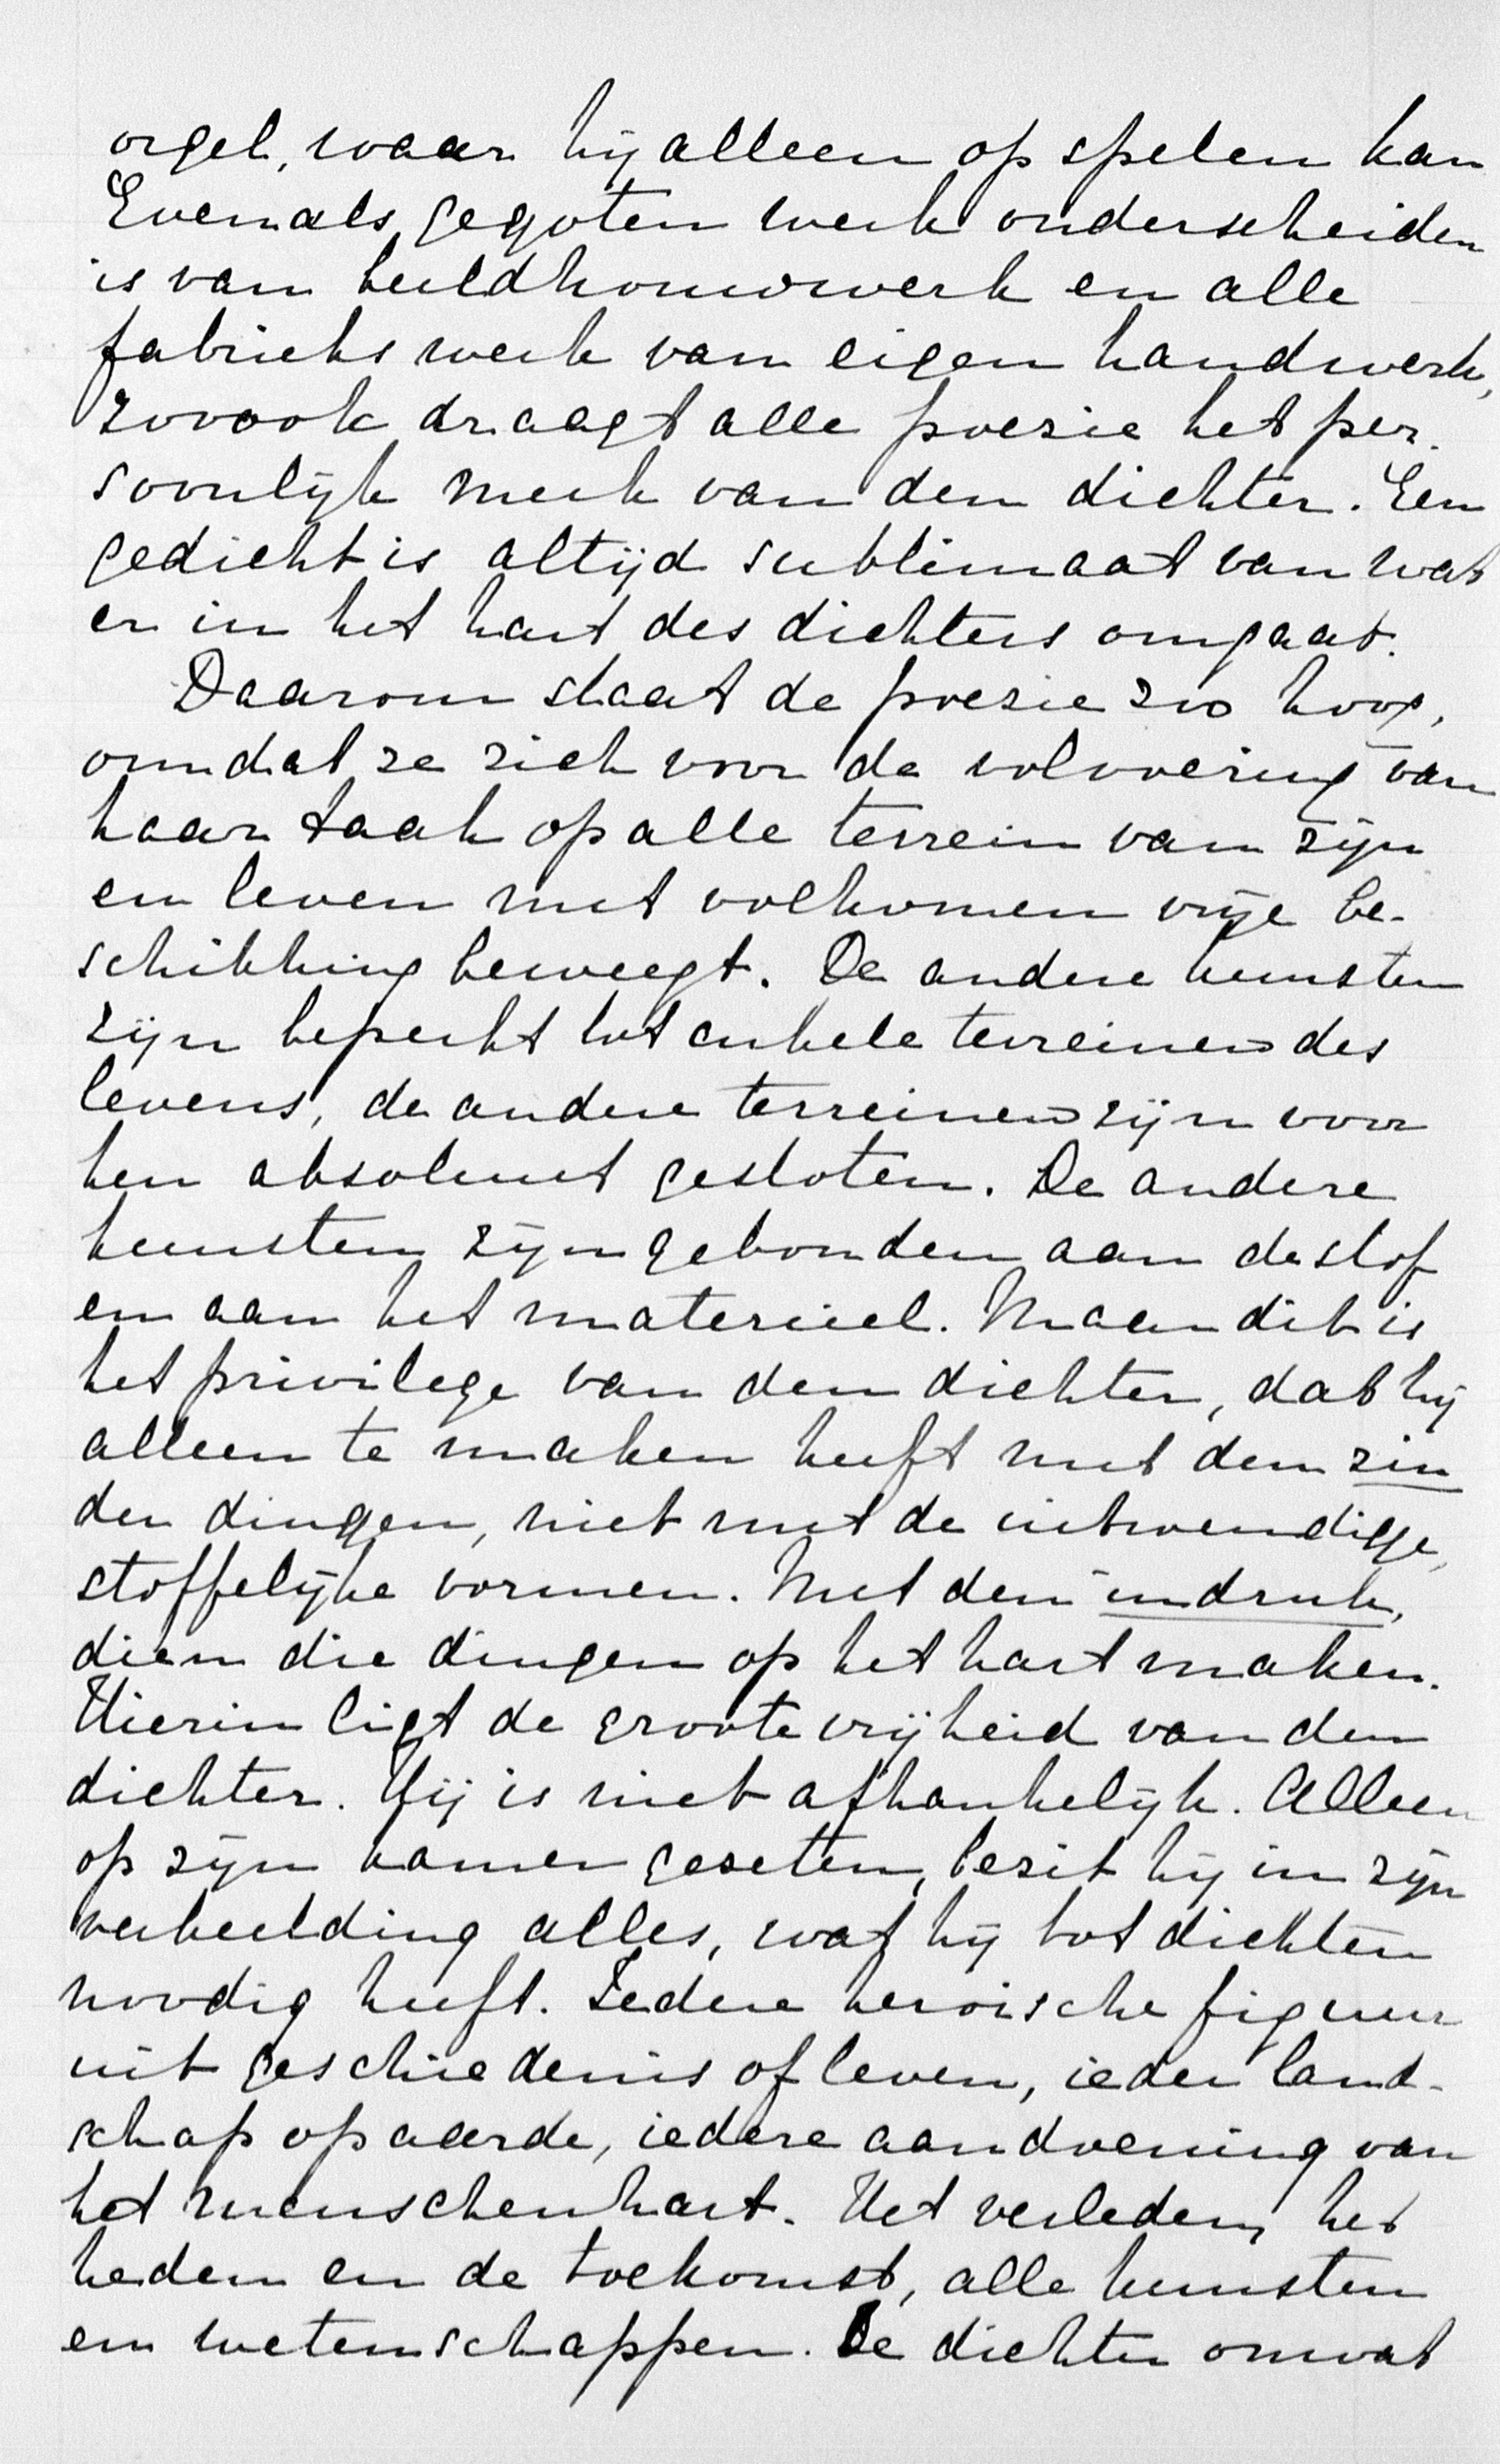 orgel, waar hij alleen op spelen kan
Evenals gegoten werk onderscheiden
is van beeldhouwwerk en alle
fabriekswerk van eigen handwerk,
zooook draagt alle poezie het per-
soonlijk merk van den dichter. Een
gedicht is altijd sublimaat van wat
er in het hart des dichters omgaat.
Daarom staat de poezie zoo hoog,
omdat ze zich voor de volvoering van
haar taak op alle terrein van zijn
en leven met volkomen vrije be-
schikking beweegt. De andere kunsten
zijn beperkt tot enkele terreinen des
levens, de andere terreinen zijn voor
hen absoluut gesloten. De andere
kunsten zijn gebonden aan de stof
en aan het materieel. Maar dit is
het privilege van den dichter, dat hij
alleen te maken heeft met den zin
der dingen, niet met de uitwendige,
stoffelijke vormen. Met den indruk,
dien die dingen op het hart maken.
Hierin ligt de groote vrijheid van den
dichter. Hij is niet afhankelijk. Alleen
op zijn kamer gezeten, bezit hij in zijn
verbeelding alles, wat hij tot dichten
noodig heeft. Iedere heroische figuur
uit geschiedenis of leven, ieder land-
schap op aarde, iedere aandoening van
het menschenhart. Het verleden, het
heden en de toekomst, alle kunsten
en wetenschappen. De dichter omvat